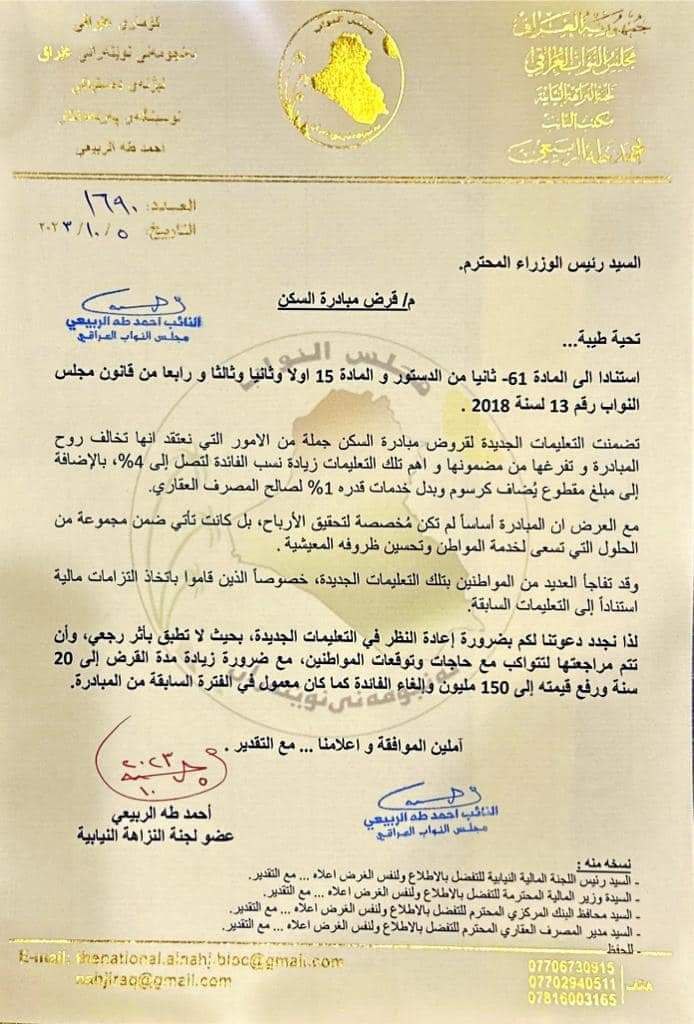 جمهورية العراق
مجلس النواب العراقي
لجنة النزاهة النيابية
مكتب النائب
أحمد طه الربيعي
كۆماری عێراقی
ئەحمد طه الربيعي
مجلس النواب
العدد: ١٦٩٠
التاريخ: ٥ / ١٠ / ٢٠٢٣
السيد رئيس الوزراء المحترم.
م/ قرض مبادرة السكن
النائب احمد طه الربيعي
مجلس النواب العراقي
تحية طيبة...
استنادا الى المادة 61- ثانيا من الدستور و المادة 15 اولا وثانيا وثالثا و رابعا من قانون مجلس
النواب رقم 13 لسنة 2018 .
تضمنت التعليمات الجديدة لقروض مبادرة السكن جملة من الامور التي نعتقد انها تخالف روح
المبادرة و تفرغها من مضمونها و اهم تلك التعليمات زيادة نسب الفائدة لتصل إلى 4%، بالإضافة
إلى مبلغ مقطوع يُضاف كرسوم وبدل خدمات قدره 1% لصالح المصرف العقاري.
مع العرض ان المبادرة أساساً لم تكن مُخصصة لتحقيق الأرباح، بل كانت تأتي ضمن مجموعة من
الحلول التي تسعى لخدمة المواطن وتحسين ظروفه المعيشية .
وقد تفاجأ العديد من المواطنين بتلك التعليمات الجديدة، خصوصاً الذين قاموا باتخاذ التزامات مالية
استناداً إلى التعليمات السابقة.
لذا نجدد دعوتنا لكم بضرورة إعادة النظر في التعليمات الجديدة، بحيث لا تطبق بأثر رجعي، وأن
تتم مراجعتها لتتواكب مع حاجات وتوقعات المواطنين، مع ضرورة زيادة مدة القرض إلى 20
سنة ورفع قيمته إلى 150 مليون وإلغاء الفائدة كما كان معمول في الفترة السابقة من المبادرة.
آملين الموافقة و اعلامنا ... مع التقدير .
٢٠٢٣
١٠
٥
أحمد طه الربيعي
عضو لجنة النزاهة النيابية
النائب احمد طه الربيعي
مجلس النواب العراقي
نسخه منه :
- السيد رئيس اللجنة المالية النيابية للتفضل بالاطلاع ولنفس الغرض اعلاه ... مع التقدير.
- السيدة وزير المالية المحترمة للتفضل بالاطلاع ولنفس الغرض اعلاه ... مع التقدير.
- السيد محافظ البنك المركزي المحترم للتفضل بالاطلاع ولنفس الغرض اعلاه ... مع التقدير.
- السيد مدير المصرف العقاري المحترم للتفضل بالاطلاع ولنفس الغرض اعلاه ... مع التقدير.
- للحفظ
E-mail: thenational.alnahj.bloc@gmail.com
nahjiraq@gmail.com
هاتف:
07706730915
07702940511
07816003165